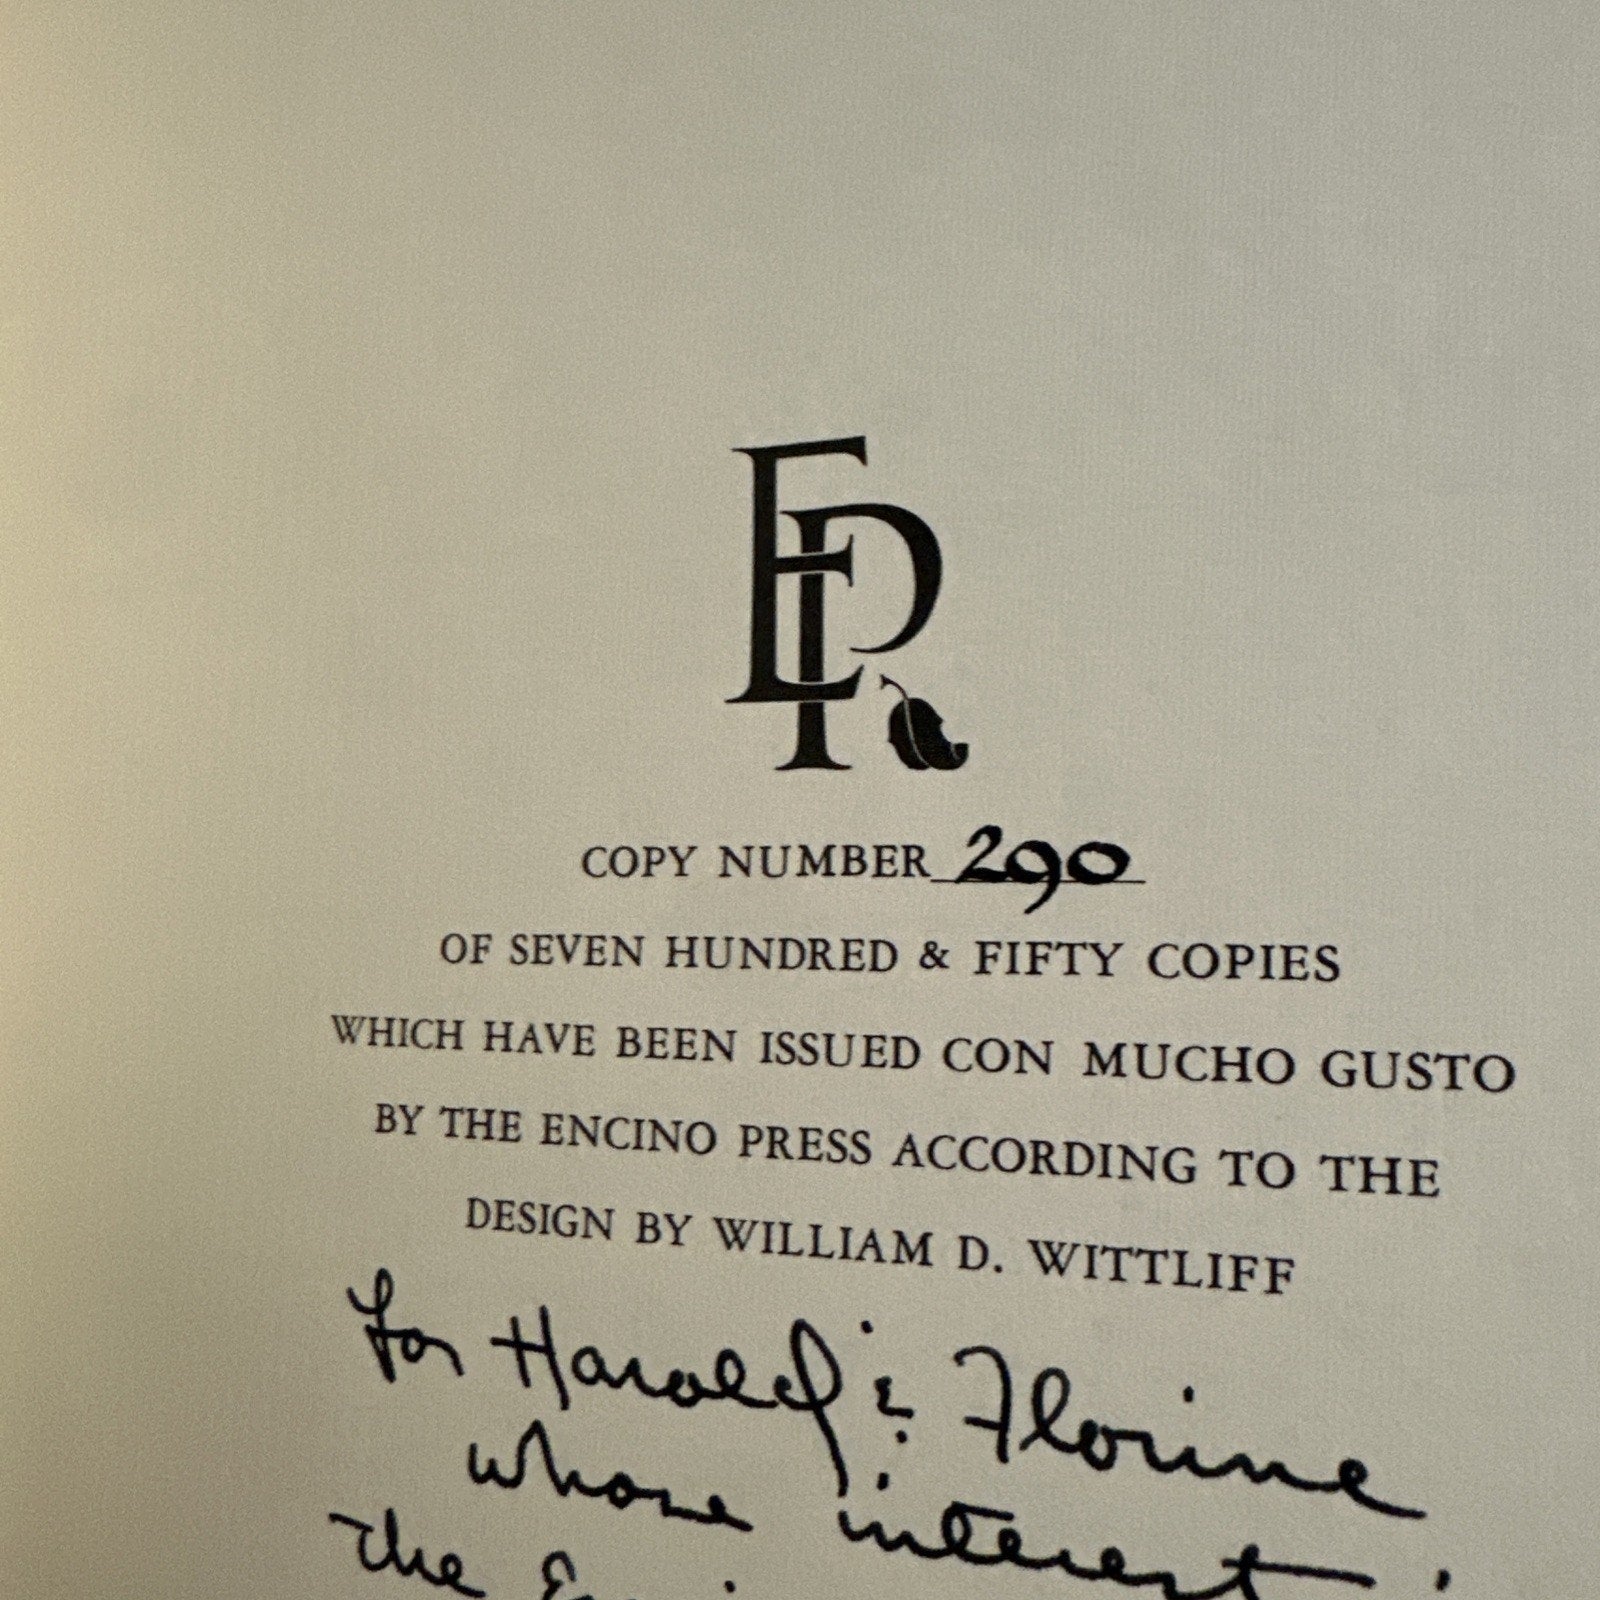 EP
COPY NUMBER 290
OF SEVEN HUNDRED & FIFTY COPIES
WHICH HAVE BEEN ISSUED CON MUCHO GUSTO
BY THE ENCINO PRESS ACCORDING TO THE
DESIGN BY WILLIAM D. WITTLIFF
For Harold & Florine
whose interest
the